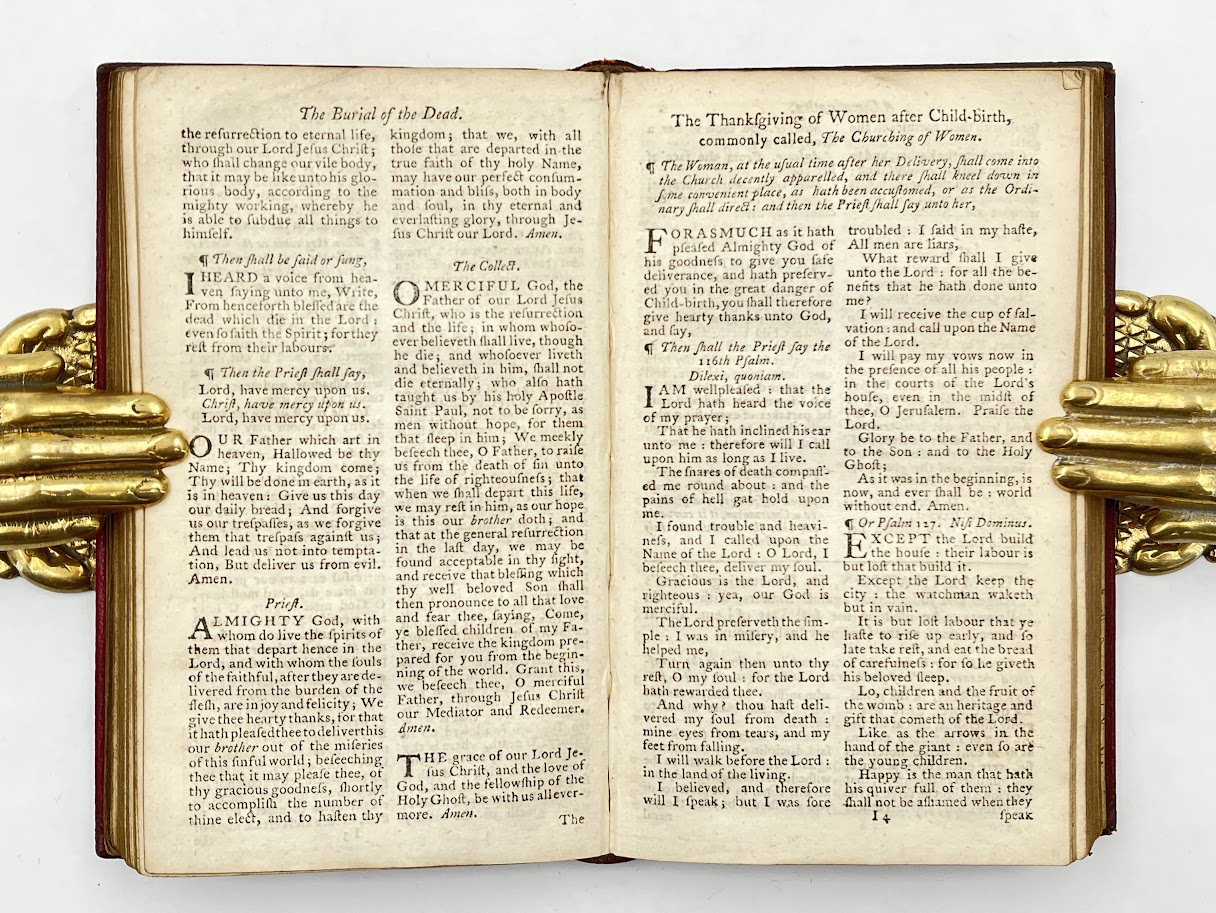 The Burial of the Dead.
the reſurrection to eternal life,
through our Lord Jeſus Chriſt;
who ſhall change our vile body,
that it may be like unto his glo-
rious body, according to the
mighty working, whereby he
is able to ſubdue all things to
himſelf.
¶ Then ſhall be ſaid or ſung,
I HEARD a voice from hea-
ven ſaying unto me, Write,
From henceforth bleſſed are the
dead which die in the Lord :
even ſo ſaith the Spirit; for they
reſt from their labours.
¶ Then the Prieſt ſhall ſay,
Lord, have mercy upon us.
Chriſt, have mercy upon us.
Lord, have mercy upon us.
OUR Father which art in
heaven, Hallowed be thy
Name; Thy kingdom come;
Thy will be done in earth, as it
is in heaven: Give us this day
our daily bread; And forgive
us our treſpaſſes, as we forgive
them that treſpaſs againſt us;
And lead us not into tempta-
tion, But deliver us from evil.
Amen.
Prieſt.
ALMIGHTY God, with
whom do live the ſpirits of
them that depart hence in the
Lord, and with whom the ſouls
of the faithful, after they are de-
livered from the burden of the
fleſh, are in joy and felicity; We
give thee hearty thanks, for that
it hath pleaſed thee to deliver this
our brother out of the miſeries
of this ſinful world; beſeeching
thee that it may pleaſe thee, of
thy gracious goodneſs, ſhortly
to accompliſh the number of
thine elect, and to haſten thy
kingdom; that we, with all
thoſe that are departed in the
true faith of thy holy Name,
may have our perfect conſum-
mation and bliſs, both in body
and ſoul, in thy eternal and
everlaſting glory, through Je-
ſus Chriſt our Lord. Amen.
The Collect.
O MERCIFUL God, the
Father of our Lord Jeſus
Chriſt, who is the reſurrection
and the life; in whom whoſo-
ever believeth ſhall live, though
he die; and whoſoever liveth
and believeth in him, ſhall not
die eternally; who alſo hath
taught us by his holy Apoſtle
Saint Paul, not to be ſorry, as
men without hope, for them
that ſleep in him; We meekly
beſeech thee, O Father, to raiſe
us from the death of ſin unto
the life of righteouſneſs; that
when we ſhall depart this life,
we may reſt in him, as our hope
is this our brother doth; and
that at the general reſurrection
in the laſt day, we may be
found acceptable in thy ſight,
and receive that bleſſing which
thy well beloved Son ſhall
then pronounce to all that love
and fear thee, ſaying, Come,
ye bleſſed children of my Fa-
ther, receive the kingdom pre-
pared for you from the begin-
ning of the world. Grant this,
we beſeech thee, O merciful
Father, through Jeſus Chriſt
our Mediator and Redeemer.
Amen.
THE grace of our Lord Je-
ſus Chriſt, and the love of
God, and the fellowſhip of the
Holy Ghoſt, be with us all ever-
more. Amen.
The
The Thankſgiving of Women after Child-birth,
commonly called, The Churching of Women.
¶ The Woman, at the uſual time after her Delivery, ſhall come into
the Church decently apparelled, and there ſhall kneel down in
ſome convenient place, as hath been accuſtomed, or as the Ordi-
nary ſhall direct: and then the Prieſt ſhall ſay unto her,
FORASMUCH as it hath
pleaſed Almighty God of
his goodneſs to give you ſafe
deliverance, and hath preſerv-
ed you in the great danger of
Child-birth, you ſhall therefore
give hearty thanks unto God,
and ſay,
¶ Then ſhall the Prieſt ſay the
116th Pſalm.
Dilexi, quoniam.
I AM wellpleaſed : that the
Lord hath heard the voice
of my prayer;
That he hath inclined his ear
unto me : therefore will I call
upon him as long as I live.
The ſnares of death compaſſ-
ed me round about : and the
pains of hell gat hold upon
me.
I found trouble and heavi-
neſs, and I called upon the
Name of the Lord : O Lord, I
beſeech thee, deliver my ſoul.
Gracious is the Lord, and
righteous : yea, our God is
merciful.
The Lord preſerveth the ſim-
ple : I was in miſery, and he
helped me,
Turn again then unto thy
reſt, O my ſoul : for the Lord
hath rewarded thee.
And why? thou haſt deli-
vered my ſoul from death :
mine eyes from tears, and my
feet from falling.
I will walk before the Lord :
in the land of the living.
I believed, and therefore
will I ſpeak; but I was ſore
troubled : I ſaid in my haſte,
All men are liars,
What reward ſhall I give
unto the Lord : for all the be-
nefits that he hath done unto
me?
I will receive the cup of ſal-
vation : and call upon the Name
of the Lord.
I will pay my vows now in
the preſence of all his people :
in the courts of the Lord's
houſe, even in the midſt of
thee, O Jeruſalem. Praiſe the
Lord.
Glory be to the Father, and
to the Son : and to the Holy
Ghoſt;
As it was in the beginning, is
now, and ever ſhall be : world
without end. Amen.
¶ Or Pſalm 127. Niſi Dominus.
EXCEPT the Lord build
the houſe : their labour is
but loſt that build it.
Except the Lord keep the
city : the watchman waketh
but in vain.
It is but loſt labour that ye
haſte to riſe up early, and ſo
late take reſt, and eat the bread
of carefulneſs : for ſo he giveth
his beloved ſleep.
Lo, children and the fruit of
the womb : are an heritage and
gift that cometh of the Lord.
Like as the arrows in the
hand of the giant : even ſo are
the young children.
Happy is the man that hath
his quiver full of them : they
ſhall not be aſhamed when they
I 4
ſpeak